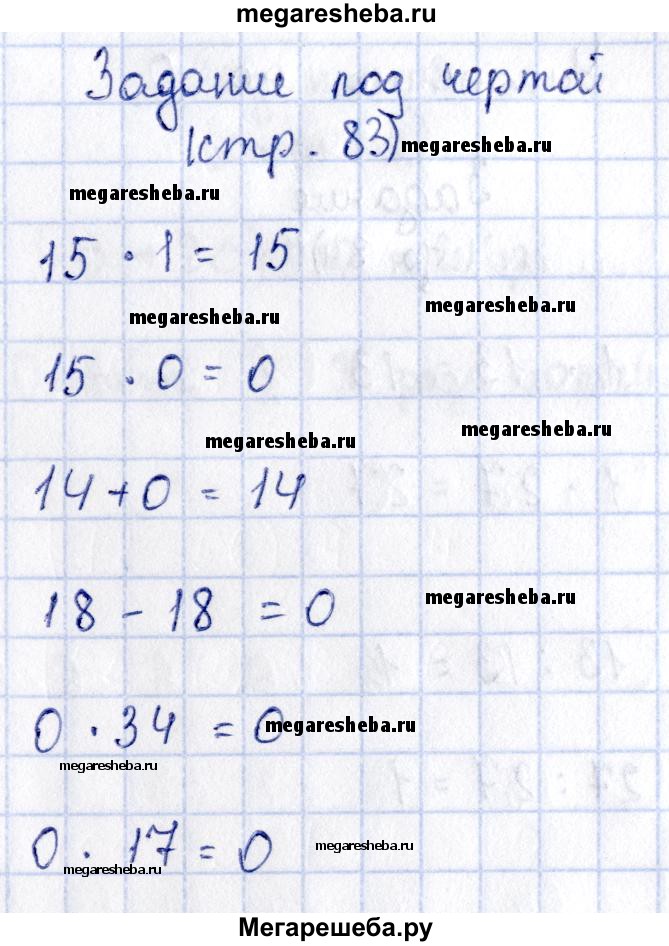 megaresheba.ru
Задание под чертой
(стр. 83)
megaresheba.ru
megaresheba.ru
15 · 1 = 15
megaresheba.ru
megaresheba.ru
15 · 0 = 0
megaresheba.ru
megaresheba.ru
14 + 0 = 14
18 - 18 = 0
megaresheba.ru
0 · 34 = 0
megaresheba.ru
megaresheba.ru
0 · 17 = 0
megaresheba.ru
megaresheba.ru
Мегарешеба.ру